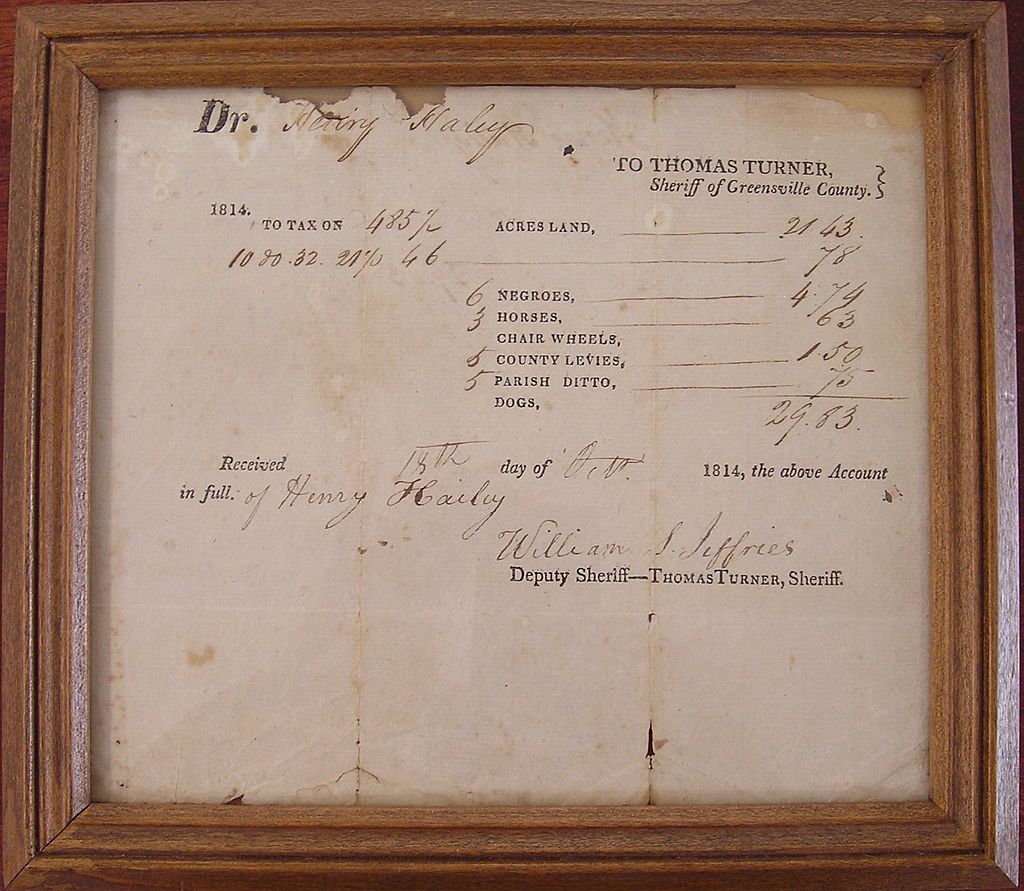 Dr. Henry Haley
TO THOMAS TURNER,
Sheriff of Greensville County.
1814.
TO TAX ON 485½ ACRES LAND, 21 43.
10 do. 32. 21½ 46 78
6 NEGROES, 4.74
3 HORSES, 63
CHAIR WHEELS,
5 COUNTY LEVIES, 1.50
5 PARISH DITTO, 75
DOGS,
29.83.
Received 18th day of Oct. 1814, the above Account
in full. of Henry Hailey
William S. Jeffries
Deputy Sheriff—THOMAS TURNER, Sheriff.